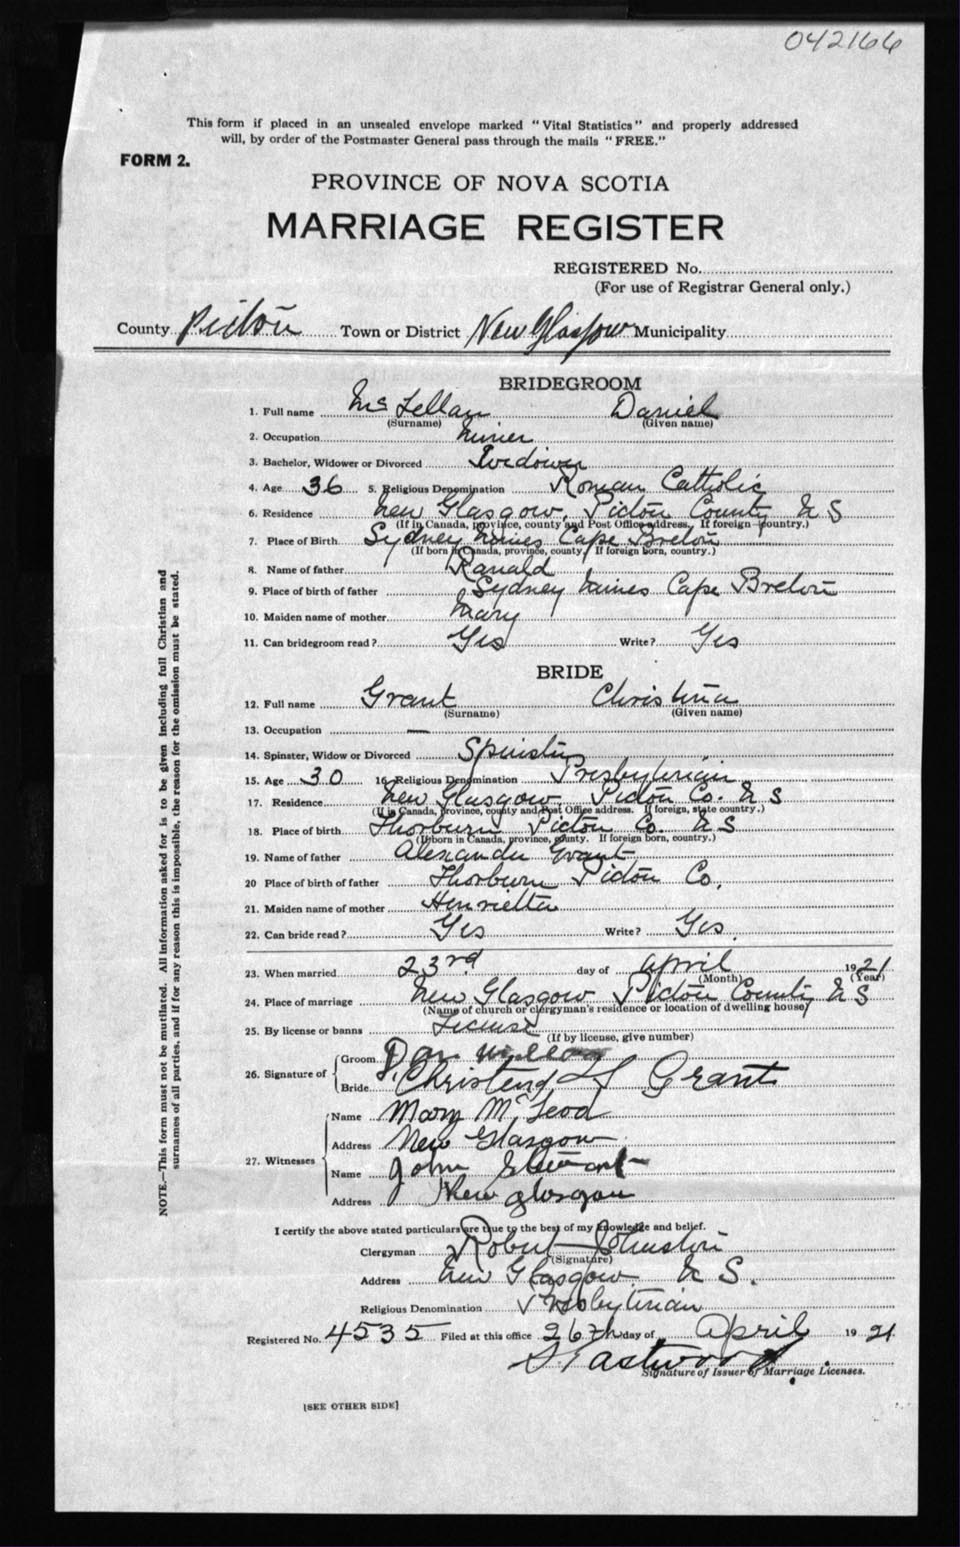 042166
This form if placed in an unsealed envelope marked "Vital Statistics" and properly addressed
will, by order of the Postmaster General pass through the mails "FREE."
FORM 2.
PROVINCE OF NOVA SCOTIA
MARRIAGE REGISTER
REGISTERED No.
(For use of Registrar General only.)
County Pictou Town or District New Glasgow Municipality
BRIDEGROOM
1. Full name McLellan Daniel
(Surname) (Given name)
2. Occupation Miner
3. Bachelor, Widower or Divorced Widower
4. Age 36 5. Religious Denomination Roman Catholic
6. Residence New Glasgow, Pictou County N S
(If in Canada, province, county and Post Office address. If foreign country.)
7. Place of Birth Sydney Mines Cape Breton
(If born in Canada, province, county. If foreign born, country.)
8. Name of father Ranald
9. Place of birth of father Sydney Mines Cape Breton
10. Maiden name of mother Mary
11. Can bridegroom read? Yes Write? Yes
BRIDE
12. Full name Grant Christina
(Surname) (Given name)
13. Occupation —
14. Spinster, Widow or Divorced Spinster
15. Age 30 16. Religious Denomination Presbyterian
17. Residence New Glasgow Pictou Co. N S
(If in Canada, province, county and Post Office address. If foreign, state country.)
18. Place of birth Thorburn Pictou Co. N S
(If born in Canada, province, county. If foreign born, country.)
19. Name of father Alexander Grant
20 Place of birth of father Thorburn Pictou Co.
21. Maiden name of mother Henrietta
22. Can bride read? Yes Write? Yes.
23. When married 23rd day of April 1921
(Month) (Year)
24. Place of marriage New Glasgow Pictou County N S
(Name of church or clergyman's residence or location of dwelling house)
25. By license or banns License
(If by license, give number)
26. Signature of Groom Dan
Bride Christena Grant
27. Witnesses
Name Mary McLeod
Address New Glasgow
Name John Stewart
Address New Glasgow
I certify the above stated particulars are true to the best of my knowledge and belief.
Clergyman Robert Johnston
(Signature)
Address New Glasgow N S.
Religious Denomination Presbyterian
Registered No. 4535 Filed at this office 26th day of April 1921
Eastwood
Signature of Issuer of Marriage Licenses.
[SEE OTHER SIDE]
NOTE.—This form must not be mutilated. All information asked for is to be given including full Christian and
surnames of all parties, and if for any reason this is impossible, the reason for the omission must be stated.